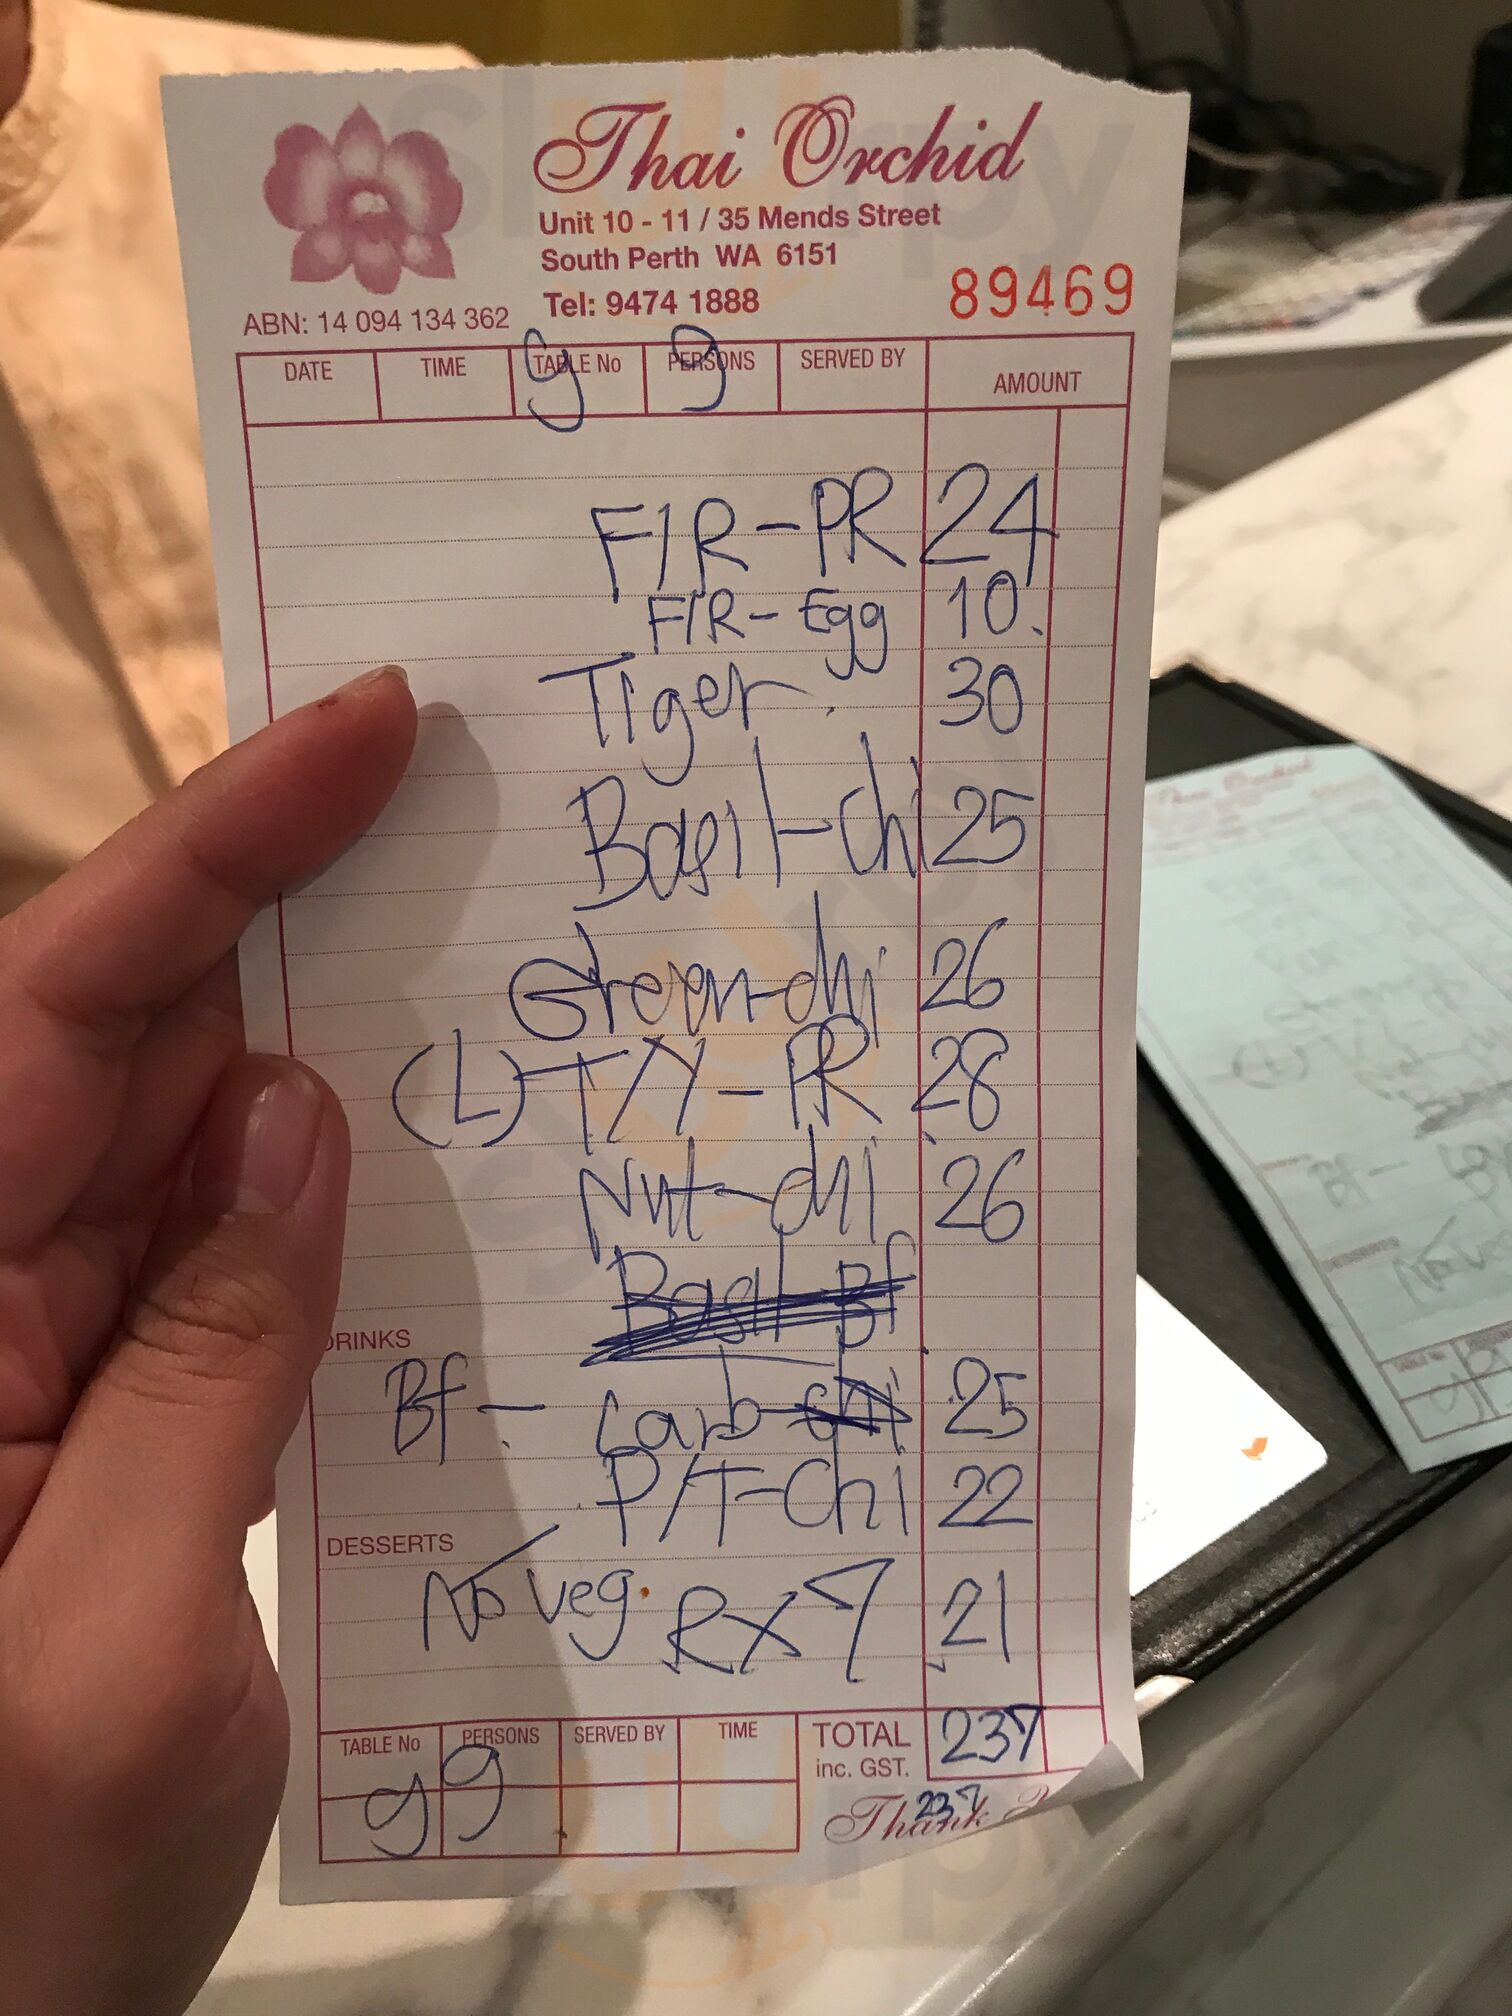 Thai Orchid
Unit 10 - 11 / 35 Mends Street
South Perth WA 6151
ABN: 14 094 134 362 Tel: 9474 1888 89469
DATE TIME TABLE No PERSONS SERVED BY AMOUNT
9 9
F/R-PR 24
F/R-Egg 10.
Tiger. 30
Basil-chi 25
Green-chi 26
(L) T/Y-PR 28
Nut-chi 26
Basil-Bf
DRINKS
Bf - carb-chi 25
P/T-Chi 22
DESSERTS
No veg. RX7 21
TABLE No PERSONS SERVED BY TIME TOTAL 237
inc. GST.
9 9
237
Thank
Thai Orchid
Bf -
DESSERTS
TABLE No
9
Slurpy